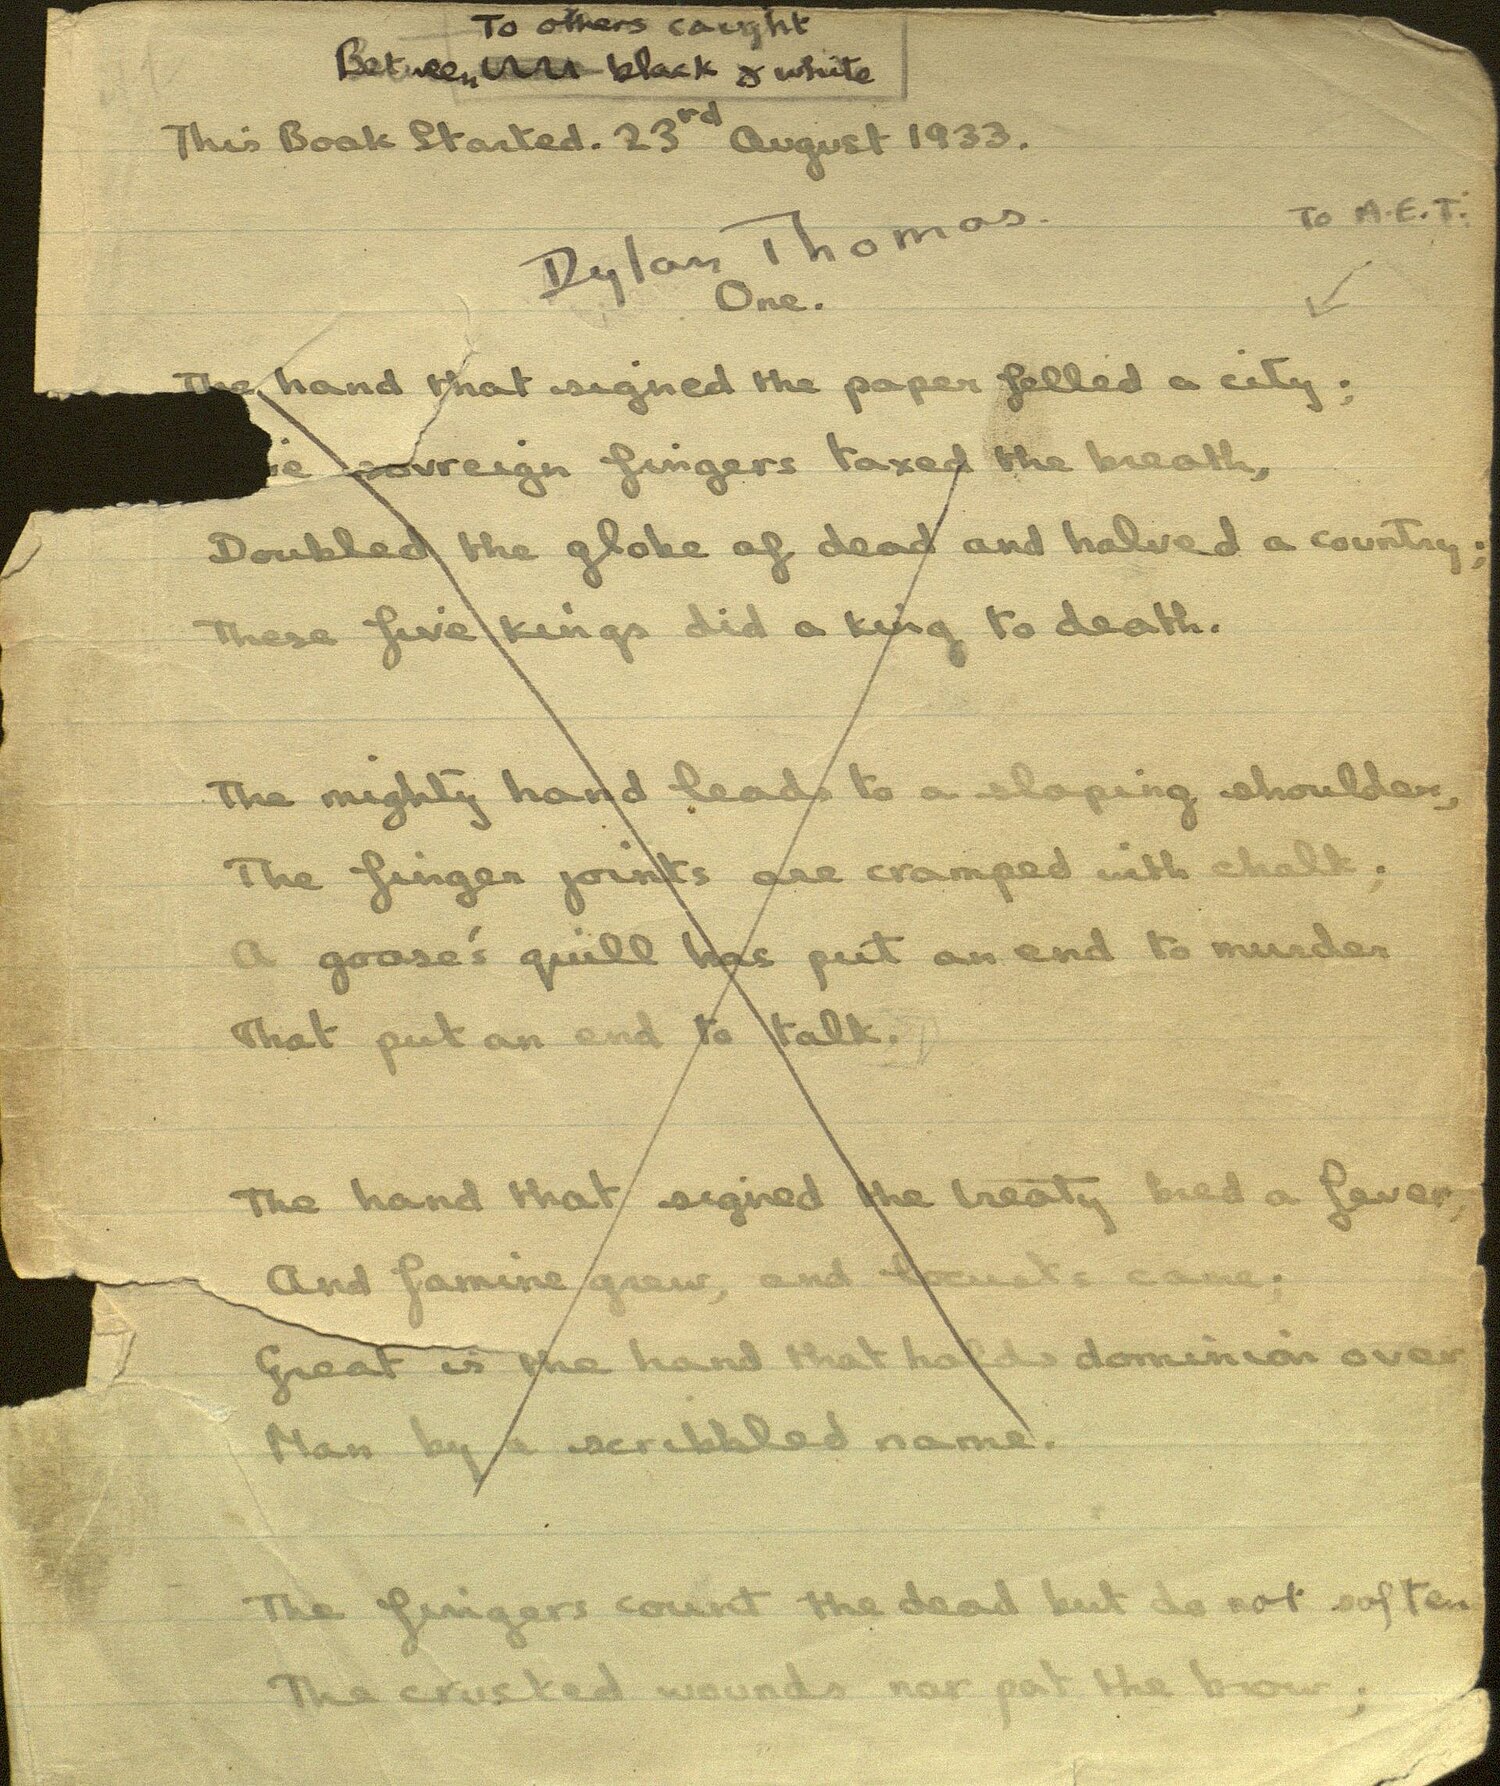 To others caught
Between black & white
This Book Started. 23rd August 1933.
To A.E.T.
Dylan Thomas.
One.
The hand that signed the paper felled a city;
sovreign fingers taxed the breath,
Doubled the globe of dead and halved a country;
These five kings did a king to death.
The mighty hand leads to a sloping shoulder,
The finger joints are cramped with chalk;
A goose's quill has put an end to murder
That put an end to talk.
The hand that signed the treaty bred a fever,
And famine grew, and locusts came;
Great is the hand that holds dominion over
Man by a scribbled name.
The fingers count the dead but do not soften
The crusted wounds nor pat the brow;